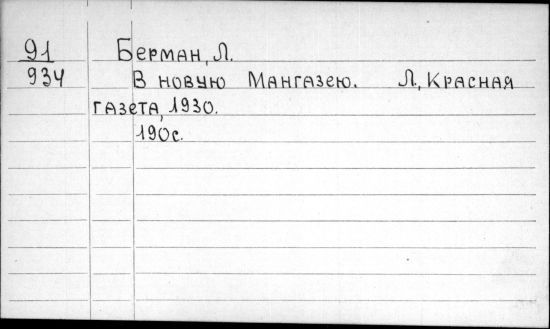 91 Берман, Л.
934 В новую Мангазею. Л, Красная
газета, 1930.
190с.